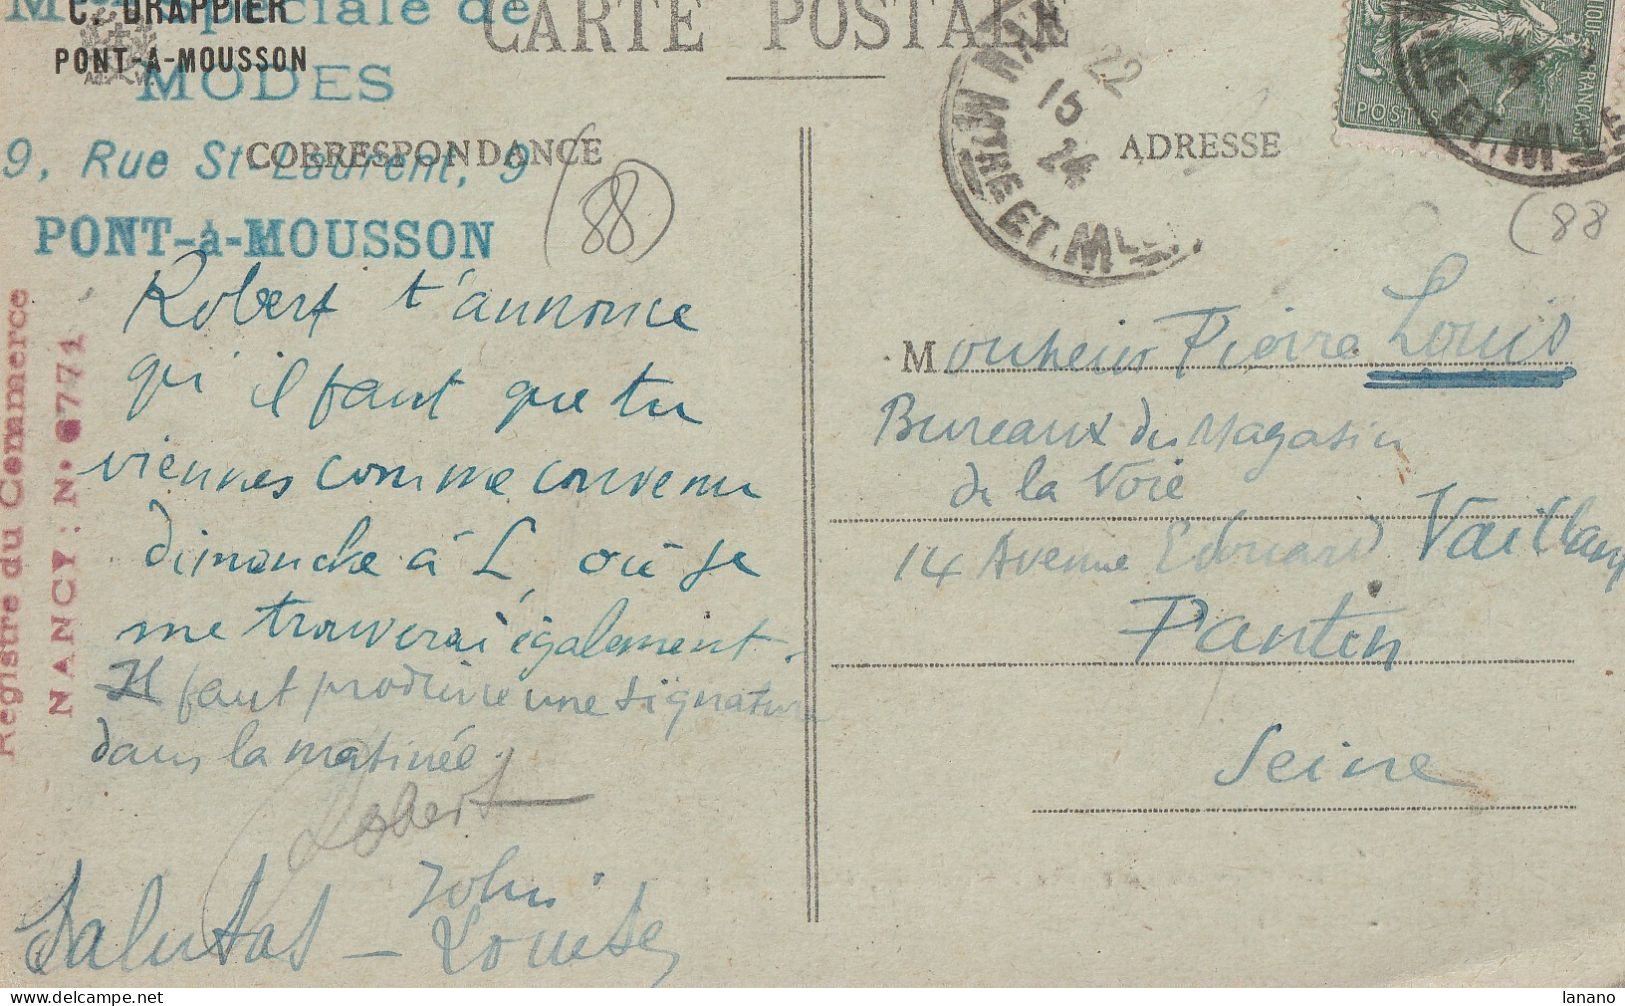 spéciale de
C. DRAPPIER
PONT-A-MOUSSON
MODES
9, Rue St Laurent, 9
PONT-à-MOUSSON
Registre du Commerce
NANCY : N. 6771
CARTE POSTALE
CORRESPONDANCE
(88)
ADRESSE
22
15
24
MTHE ET M
POSTES
FRANÇAISE
(88
Robert t'annonce
qu'il faut que tu
viennes comme convenu
dimanche à L, où je
me trouverai également.
Il faut produire une signature
dans la matinée.
Robert
John
Salutas - Louise
Monsieur Pierre Louis
Bureaux du Magasin
de la Voie
14 Avenue Edouard Vaillant
Pantin
Seine
lanano